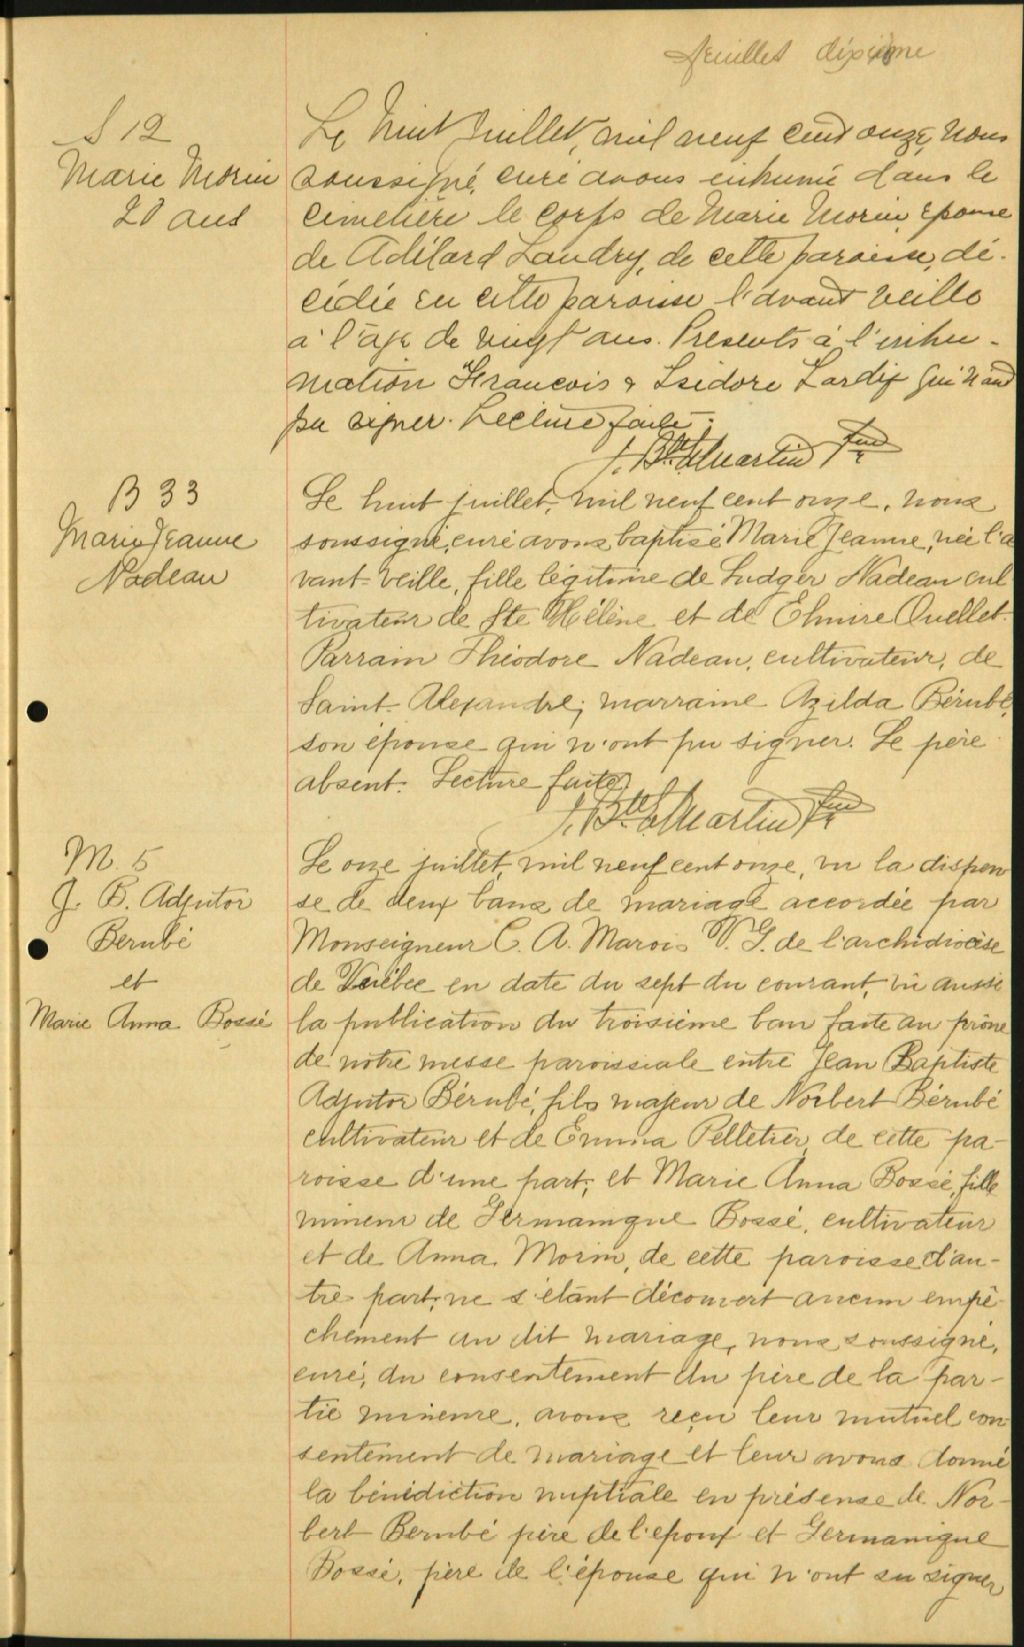 feuillet dixième
S 12
Marie Morin
20 ans
Le huit juillet, mil neuf cent onze, nous
soussigné, curé avons inhumé dans le
cimetière le corps de Marie Morin, épouse
de Adélard Landry, de cette paroisse, dé-
cédée en cette paroisse l'avant veille
à l'âge de vingt ans. Présents à l'inhu-
mation Francois & Isidore Tardif qui n'ont
pu signer. Lecture faite.
J. Bte Martin Ptre
B 33
Marie Jeanne
Nadeau
Le huit juillet, mil neuf cent onze, nous
soussigné, curé avons baptisé Marie Jeanne, née l'a
vant-veille, fille légitime de Ludger Nadeau cul
tivateur de Ste Hélène et de Elmire Ouellet.
Parrain Théodore Nadeau, cultivateur, de
Saint-Alexandre; marraine Azilda Bérubé,
son épouse qui n'ont pu signer. Le père
absent. Lecture faite.
J. Bte Martin Ptre
M 5
J. B. Adjutor
Berubé
et
Marie Anna Bossé
Le onze juillet, mil neuf cent onze, vu la dispen
se de deux bans de mariage accordée par
Monseigneur C. A. Marois V. G. de l'archidiocèse
de Québec en date du sept du courant, vu aussi
la publication du troisième ban faite au prône
de notre messe paroissiale entre Jean Baptiste
Adjutor Bérubé, fils majeur de Norbert Bérubé
cultivateur et de Emma Pelletier, de cette pa-
roisse d'une part; et Marie Anna Bossé, fille
mineur de Germanique Bossé, cultivateur
et de Anna Morin, de cette paroisse d'au-
tre part; ne s'étant découvert aucun empê-
chement au dit mariage, nous soussigné,
curé, du consentement du père de la par-
tie mineure, avons reçu leur mutuel con
sentement de mariage et leur avons donné
la bénédiction nuptiale en présense de Nor-
bert Berubé père de l'epoux et Germanique
Bossé, père de l'épouse qui n'ont su signer